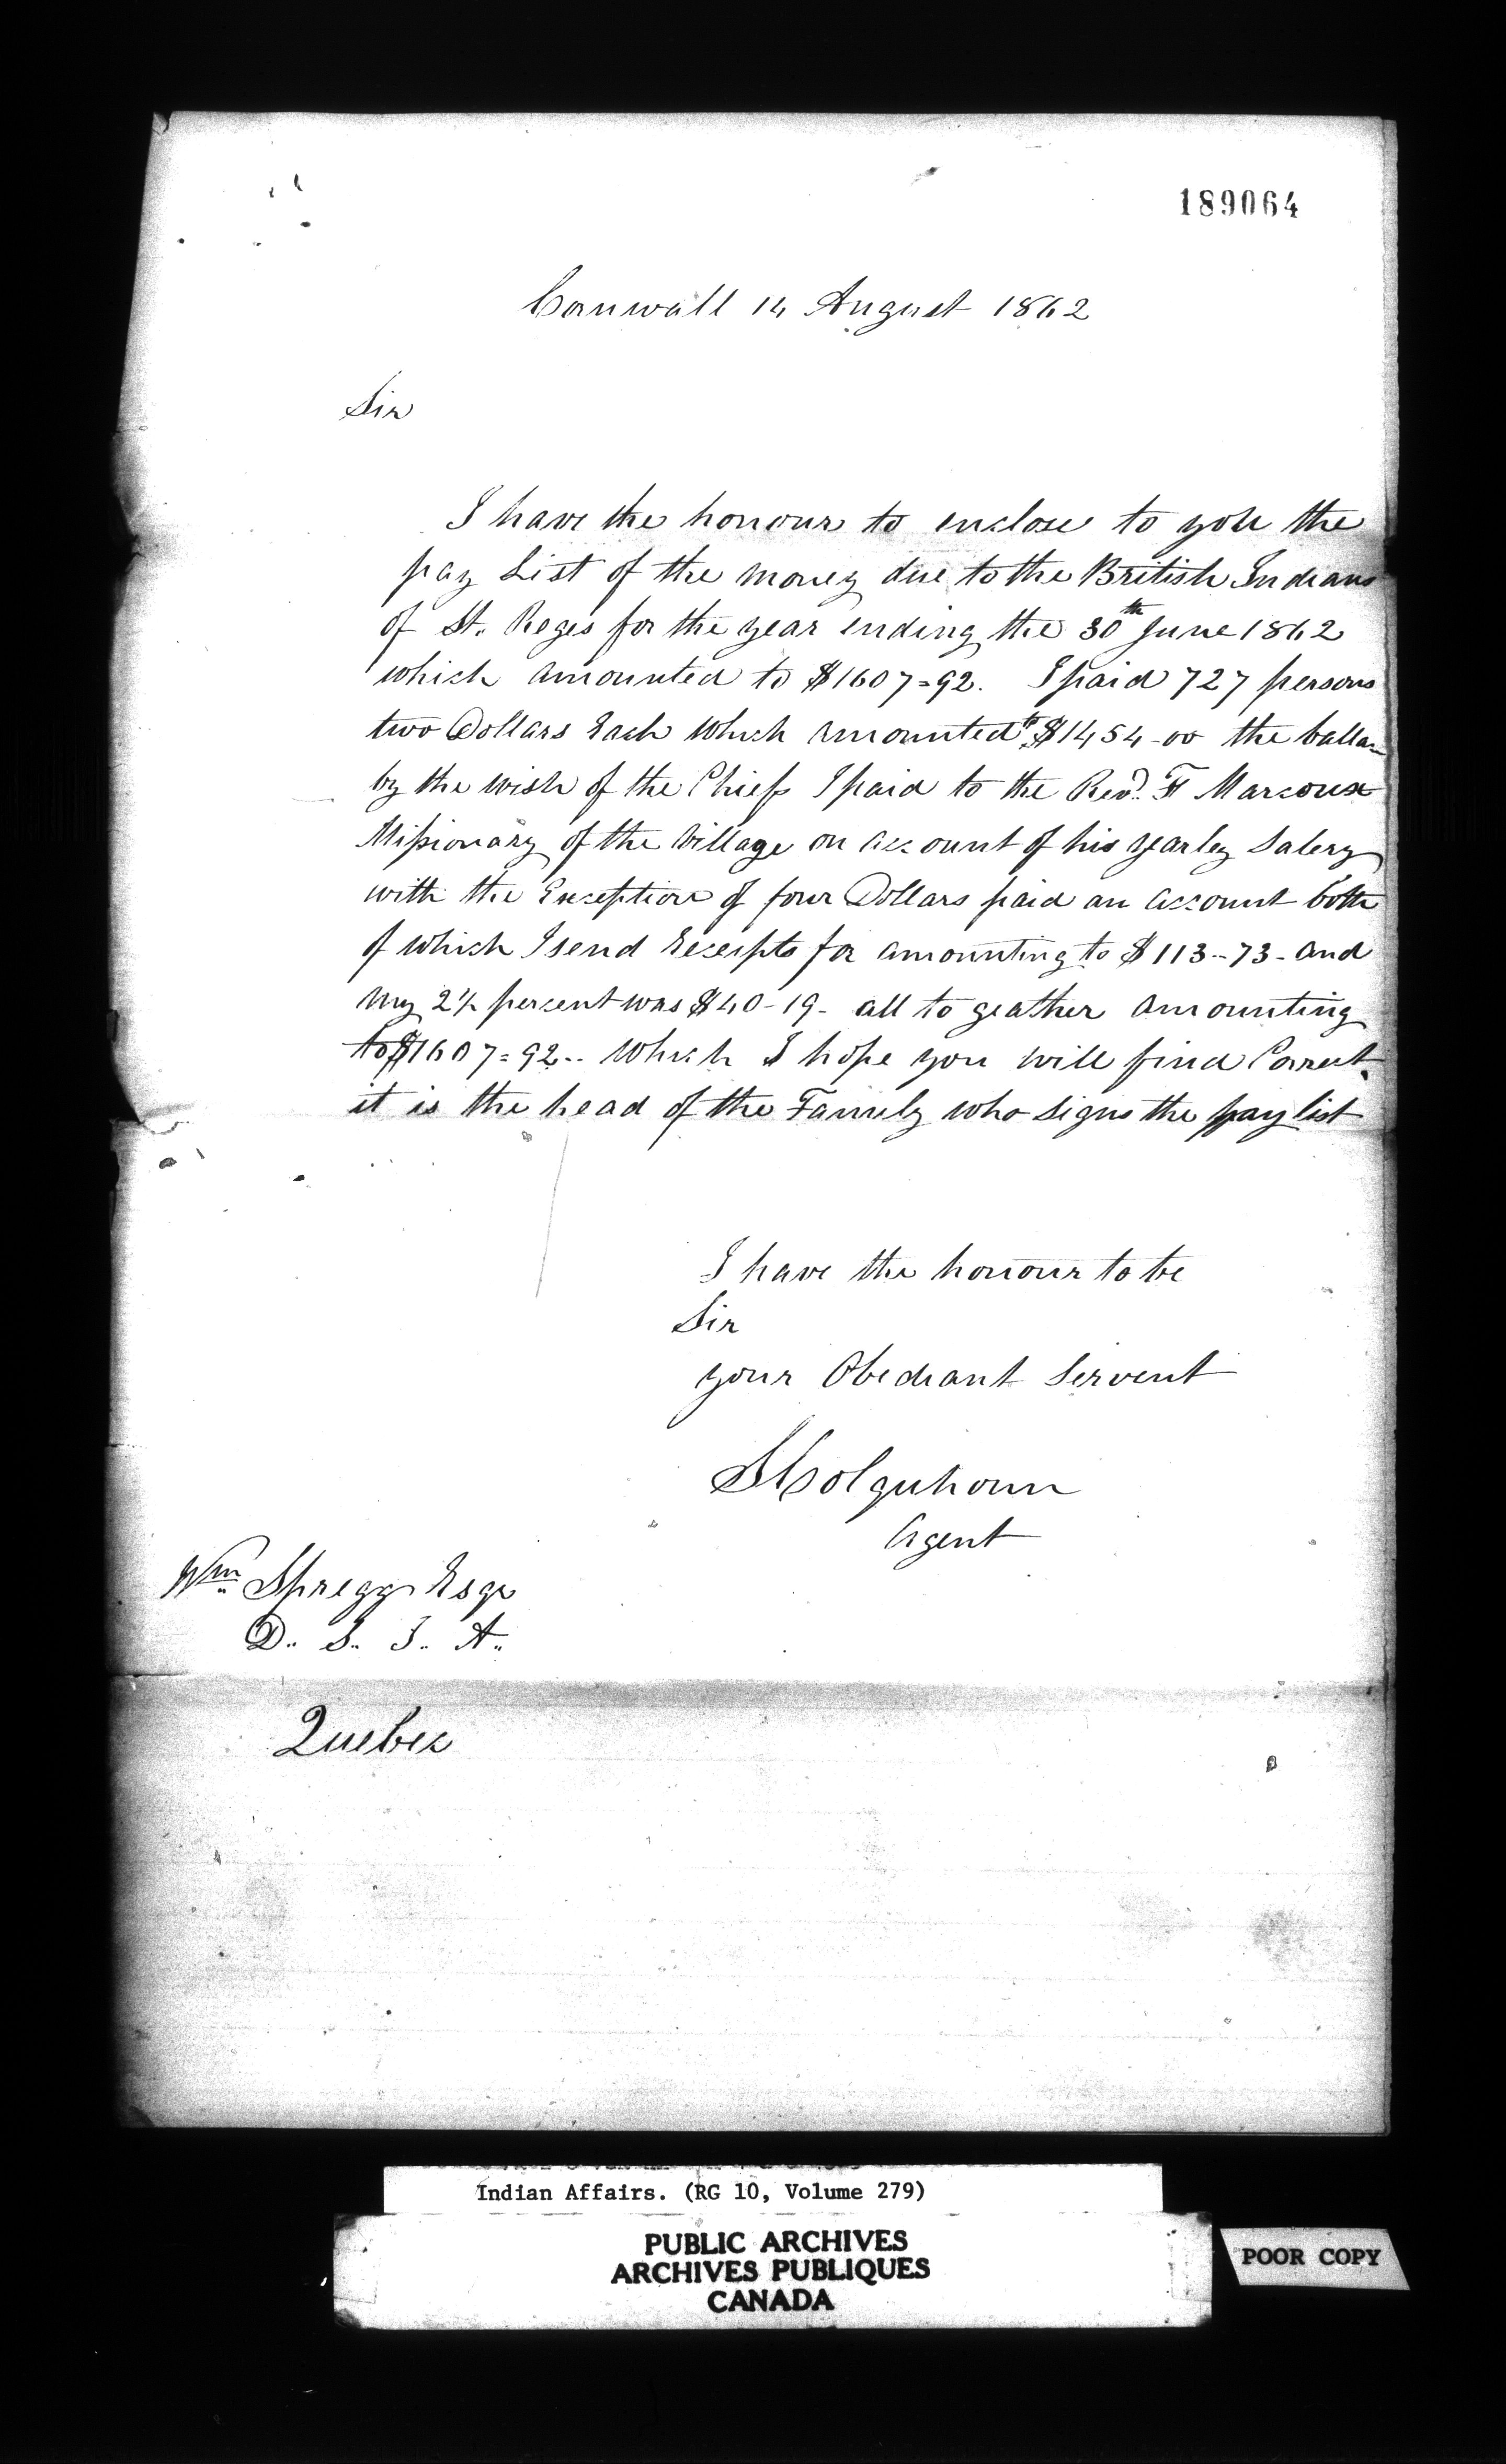 189064
Cornwall 14 August 1862
Sir
I have the honour to enclose to you the
pay List of the money due to the British Indians
of St. Reges for the year ending the 30th June 1862
which amounted to $1607=92. I paid 727 persons
two Dollars Each which amounted to $1454-00 the ballan
by the wish of the Chiefs I paid to the Revd. F Marcoux
Missionary of the village on account of his yearley Salery
with the Exception of four Dollars paid an account both
of which I send Receipts for amounting to $113--73- and
my 2½ percent was $40-19- all to geather amounting
to $1607=92-- which I hope you will find Correct.
it is the head of the Famely who signs the pay list
I have the honour to be
Sir
your Obediant Servent
S Colquhoun
Agent
Wm Spragge Esqr
D.. S.. I.. A..
Quebec
Indian Affairs. (RG 10, Volume 279)
PUBLIC ARCHIVES
ARCHIVES PUBLIQUES
CANADA
POOR COPY